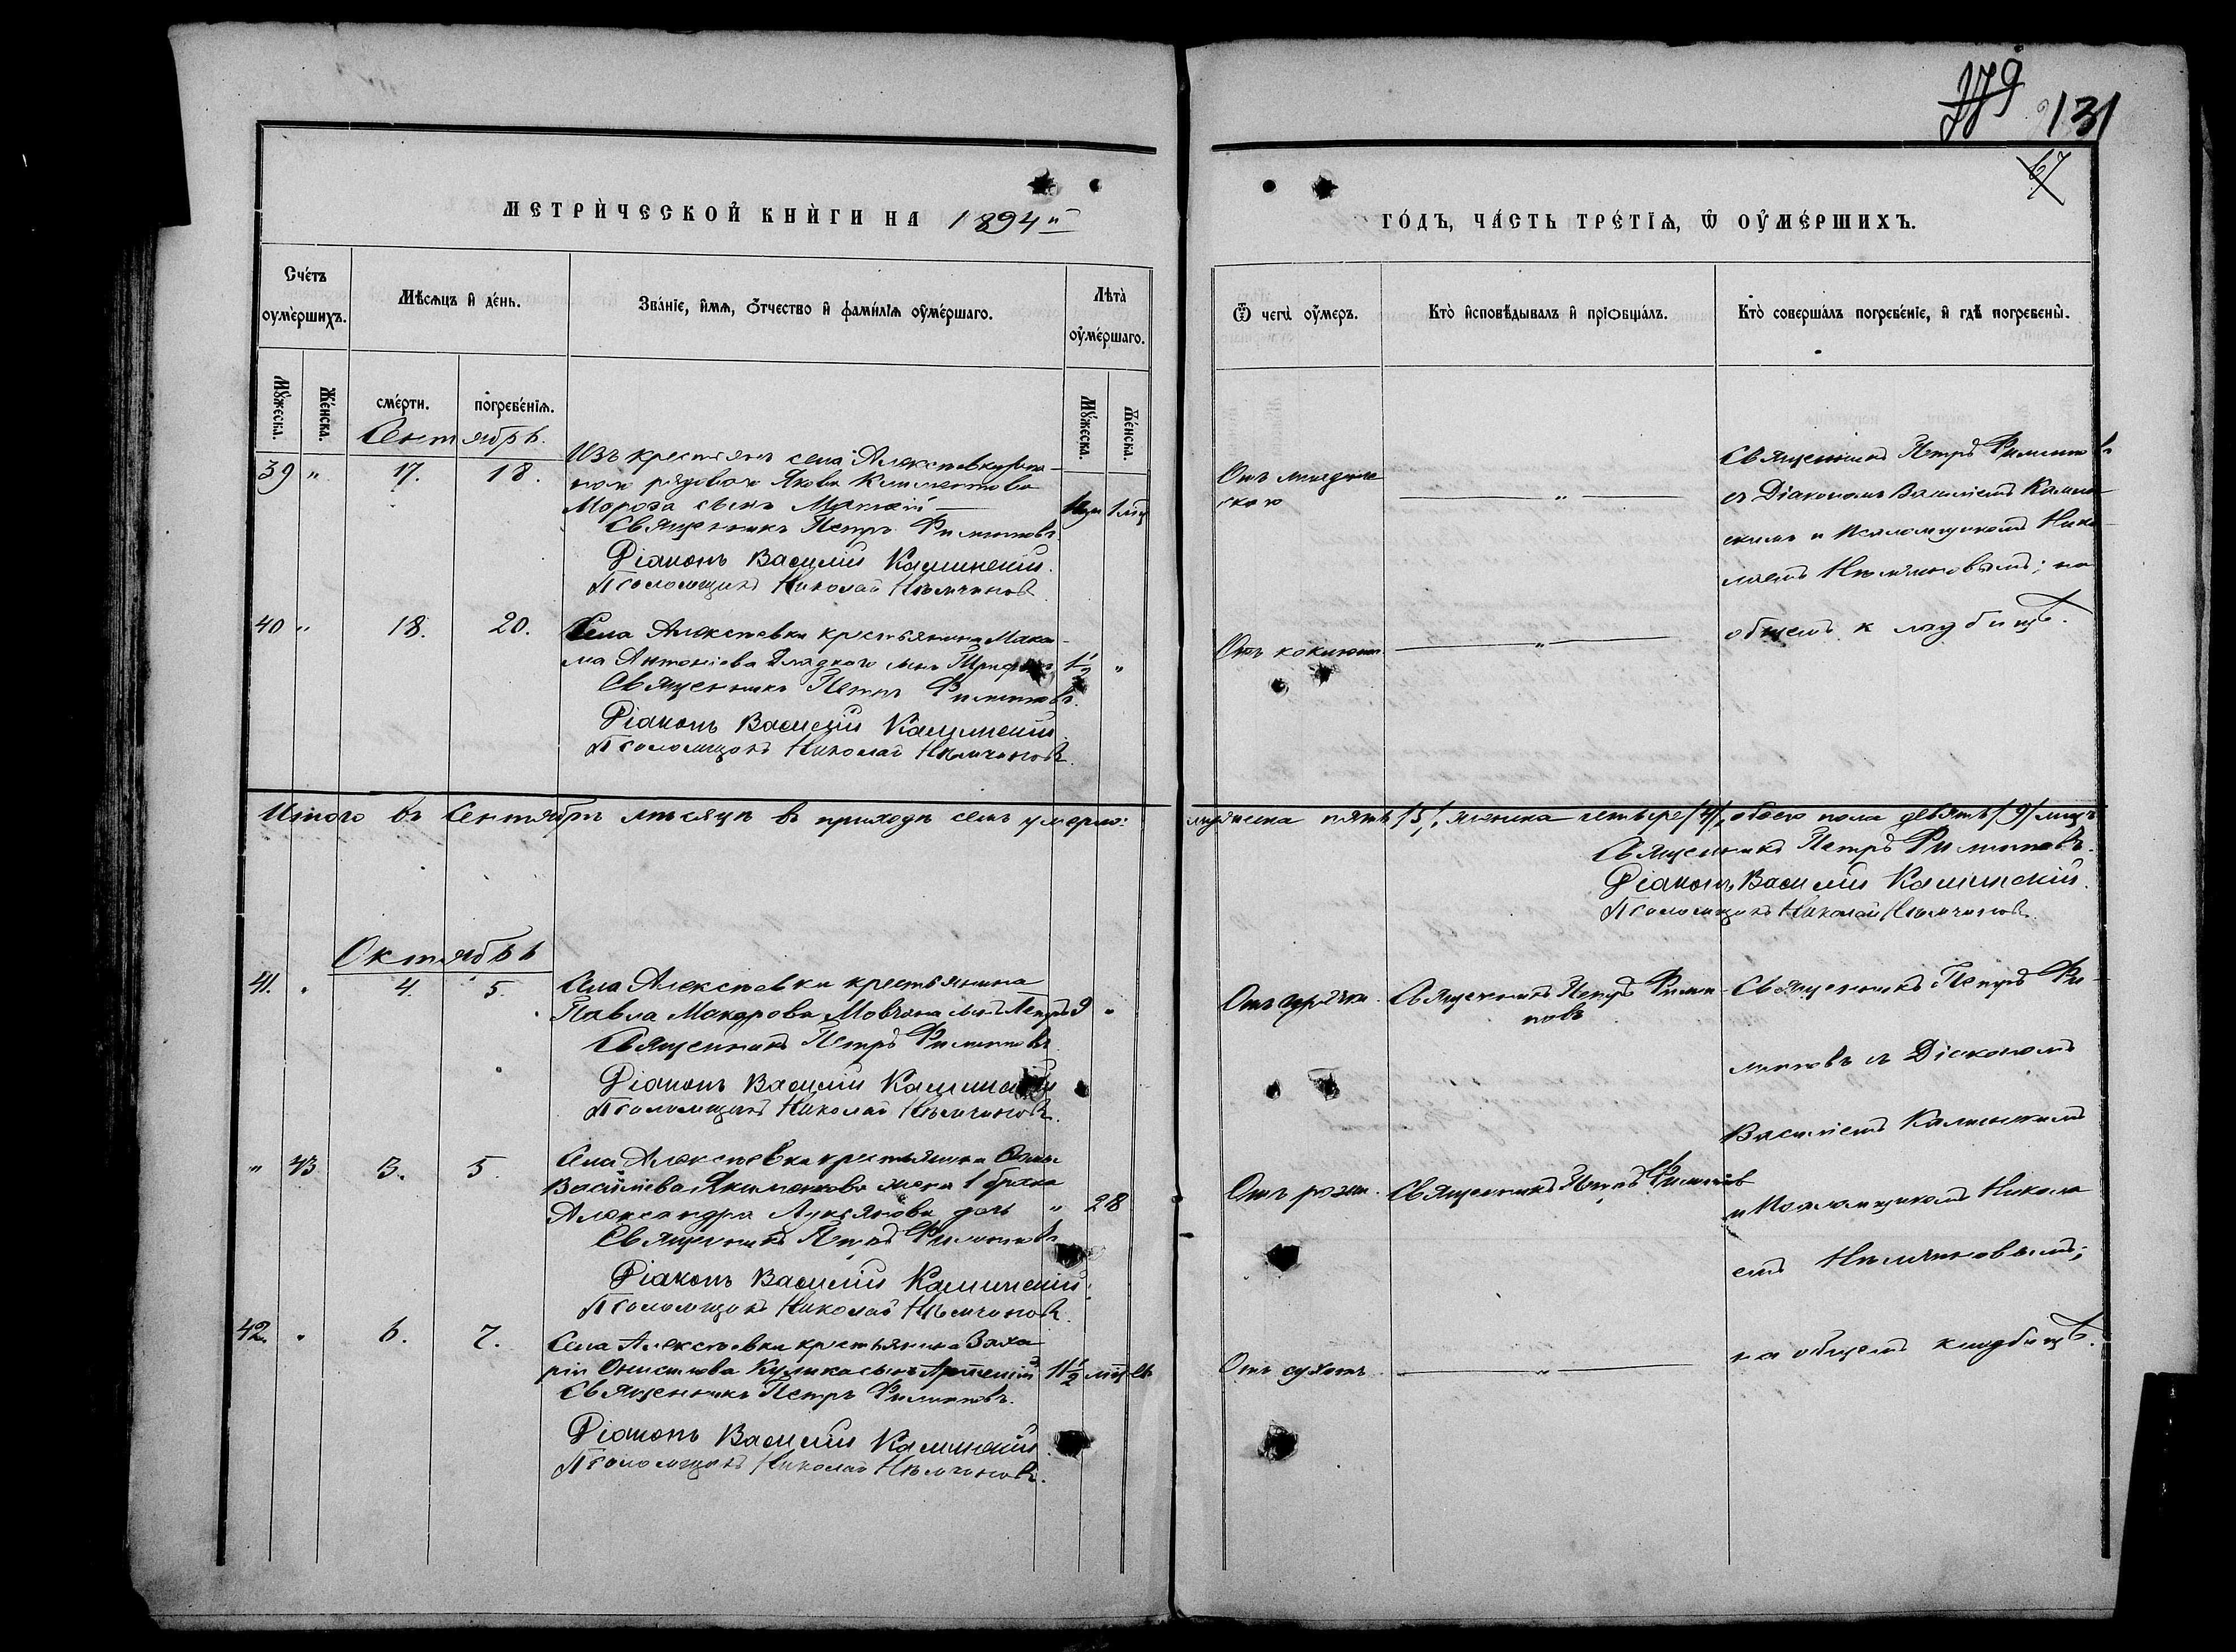 379 131
67
МЕТРИ́ЧЕСКОЙ КНИ́ГИ НА 1894й
ГО́ДЪ, ЧА́СТЬ ТРЕ́ТІѦ, Ѿ ОУ҆МЕ́РШИХЪ.
Сче́тъ оумерших​ъ.
Мѣ́сѧцъ и҆ де́нь.
Зва́нїе, и҆́мѧ, о҆́тчество и҆ фами́лїѧ оу҆ме́ршаго.
Лѣта̀ оу҆ме́ршаго.
Ѿ чегѡ̀ оу҆́меръ.
Кто̀ и҆сповѣ́дывалъ и҆ прїѻбща́лъ.
Кто̀ соверша́лъ погребе́нїе, и҆ гдѣ̀ погребены̀.
Мꙋ́жеска. Же́нска. сме́рти. погребе́нїѧ. Мꙋ́жеска. Же́нска.
Сентябрь.
39 " 17. 18.
Изъ крестьянъ села Алексѣевки
рядового Якова Климентова
Мороза сынъ Матѳей
1 мѣц
Священникъ Петръ Филиповъ
Діаконъ Василій Калинскій.
Псаломщикъ Николай Нѣмчиновъ
Отъ младенче
скаго
"
Священникъ Петръ Филиповъ
съ Діакономъ Василіемъ Калин
скимъ и Псаломщикомъ Нико
лаемъ Нѣмчиновымъ; на
общемъ кладбищѣ.
40 " 18. 20.
Села Алексѣевки крестьянина Макси
ма Антоніева Гладкаго сынъ
1½ "
Священникъ Петръ Филиповъ.
Діаконъ Василій Калинскій.
Псаломщикъ Николай Нѣмчиновъ.
Отъ коклюша.
"
Итого въ Сентябрѣ мѣсяцѣ въ приходѣ семъ умерло: мужеска пять /5/, женска четыре /4/, обоего пола девять /9/ лицъ
Священникъ Петръ Филиповъ.
Діаконъ Василій Калинскій.
Псаломщикъ Николай Нѣмчиновъ.
Октябрь
41. " 4. 5.
Села Алексѣевки крестьянина
Павла Макарова Мовчана сынъ Петръ 9 "
Священникъ Петръ Филиповъ
Діаконъ Василій Калинскій
Псаломщикъ Николай Нѣмчиновъ.
Отъ горячки. Священникъ Петръ Фили
повъ
Священникъ Петръ Фи
липовъ съ Діакономъ
Василіемъ Калинскимъ
и Псаломщикомъ Никола
емъ Нѣмчиновымъ;
на общемъ кладбищѣ.
" 43 3. 5.
Села Алексѣевки крестьянина
Василіева Якименкова жена 1 брака
Александра Лукьянова дочь " 28
Священникъ Петръ Филиповъ
Діаконъ Василій Калинскій.
Псаломщикъ Николай Нѣмчиновъ.
Отъ рожи. Священникъ Петръ Филиповъ
42. " 6. 7.
Села Алексѣевки крестьянина Заха
рія Онисимова Кулика сынъ Арсеній 1½ мѣц
Священникъ Петръ Филиповъ.
Діаконъ Василій Калинскій.
Псаломщикъ Николай Нѣмчиновъ.
Отъ сухотъ
"